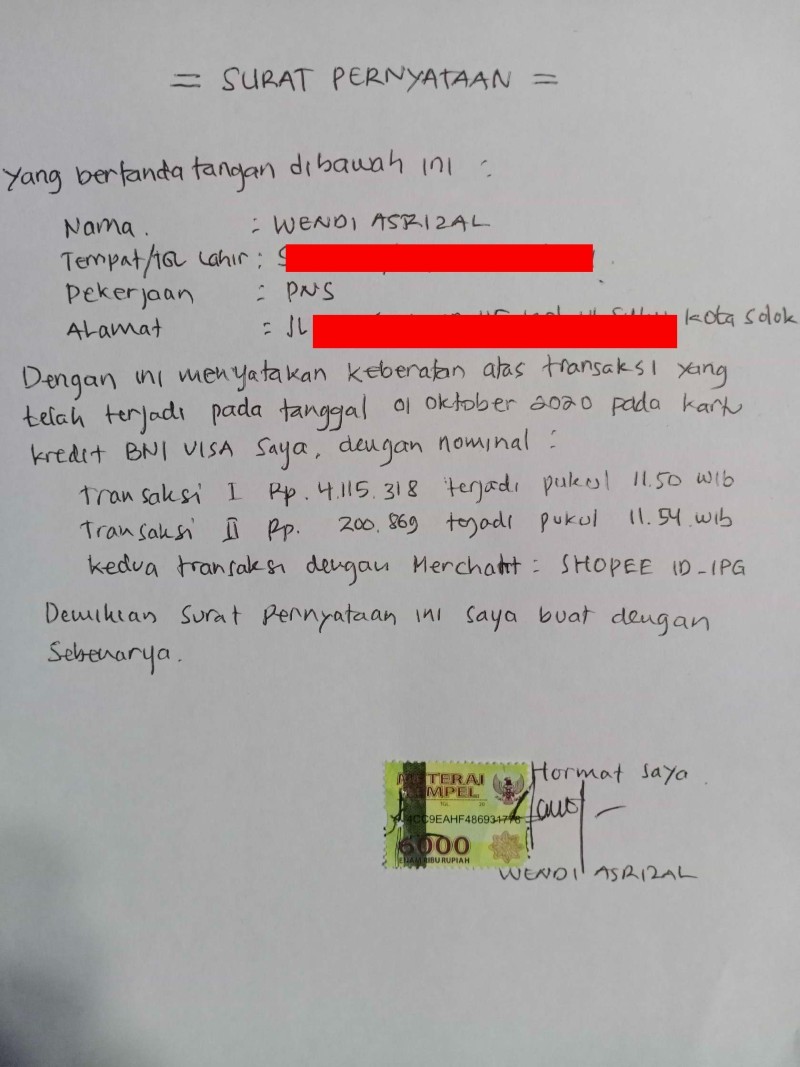 = SURAT PERNYATAAN =
Yang bertanda tangan dibawah ini :
Nama. : WENDI ASRIZAL
Tempat/TGL Lahir : S
Pekerjaan : PNS
ALamat : JL kota solok
Dengan ini menyatakan keberatan atas transaksi yang
telah terjadi pada tanggal 01 oktober 2020 pada kartu
kredit BNI VISA Saya, dengan nominal :
transaksi I Rp. 4.115.318 terjadi pukul 11.50 wib
Transaksi II Rp. 200.869 terjadi pukul 11.54 wib
kedua transaksi dengan Merchant : SHOPEE ID_IPG
Demikian Surat Pernyataan ini saya buat dengan
Sebenarya.
Hormat saya
METERAI
TEMPEL
TGL. 20
6000
ENAM RIBU RUPIAH
WENDI ASRIZAL